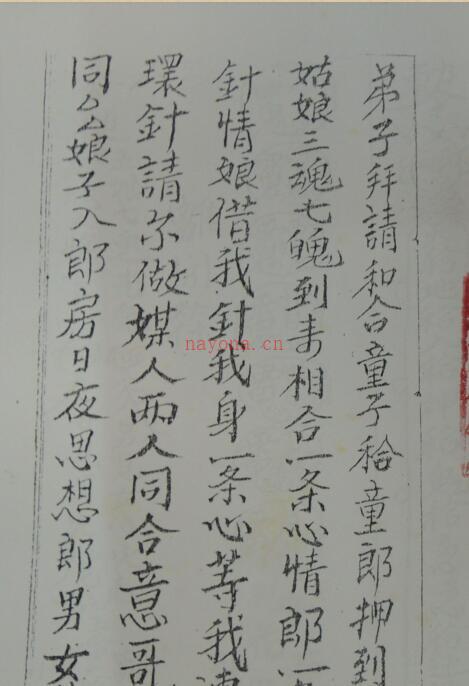 弟子拜請和合童子 童郎押到
姑娘三魂七魄到来相合一条心情郎一
針情娘借我針我身一条心等我
環針請尔做媒人两人同合意哥
同公娘子入郎房日夜思想郎男女
nayona.cn